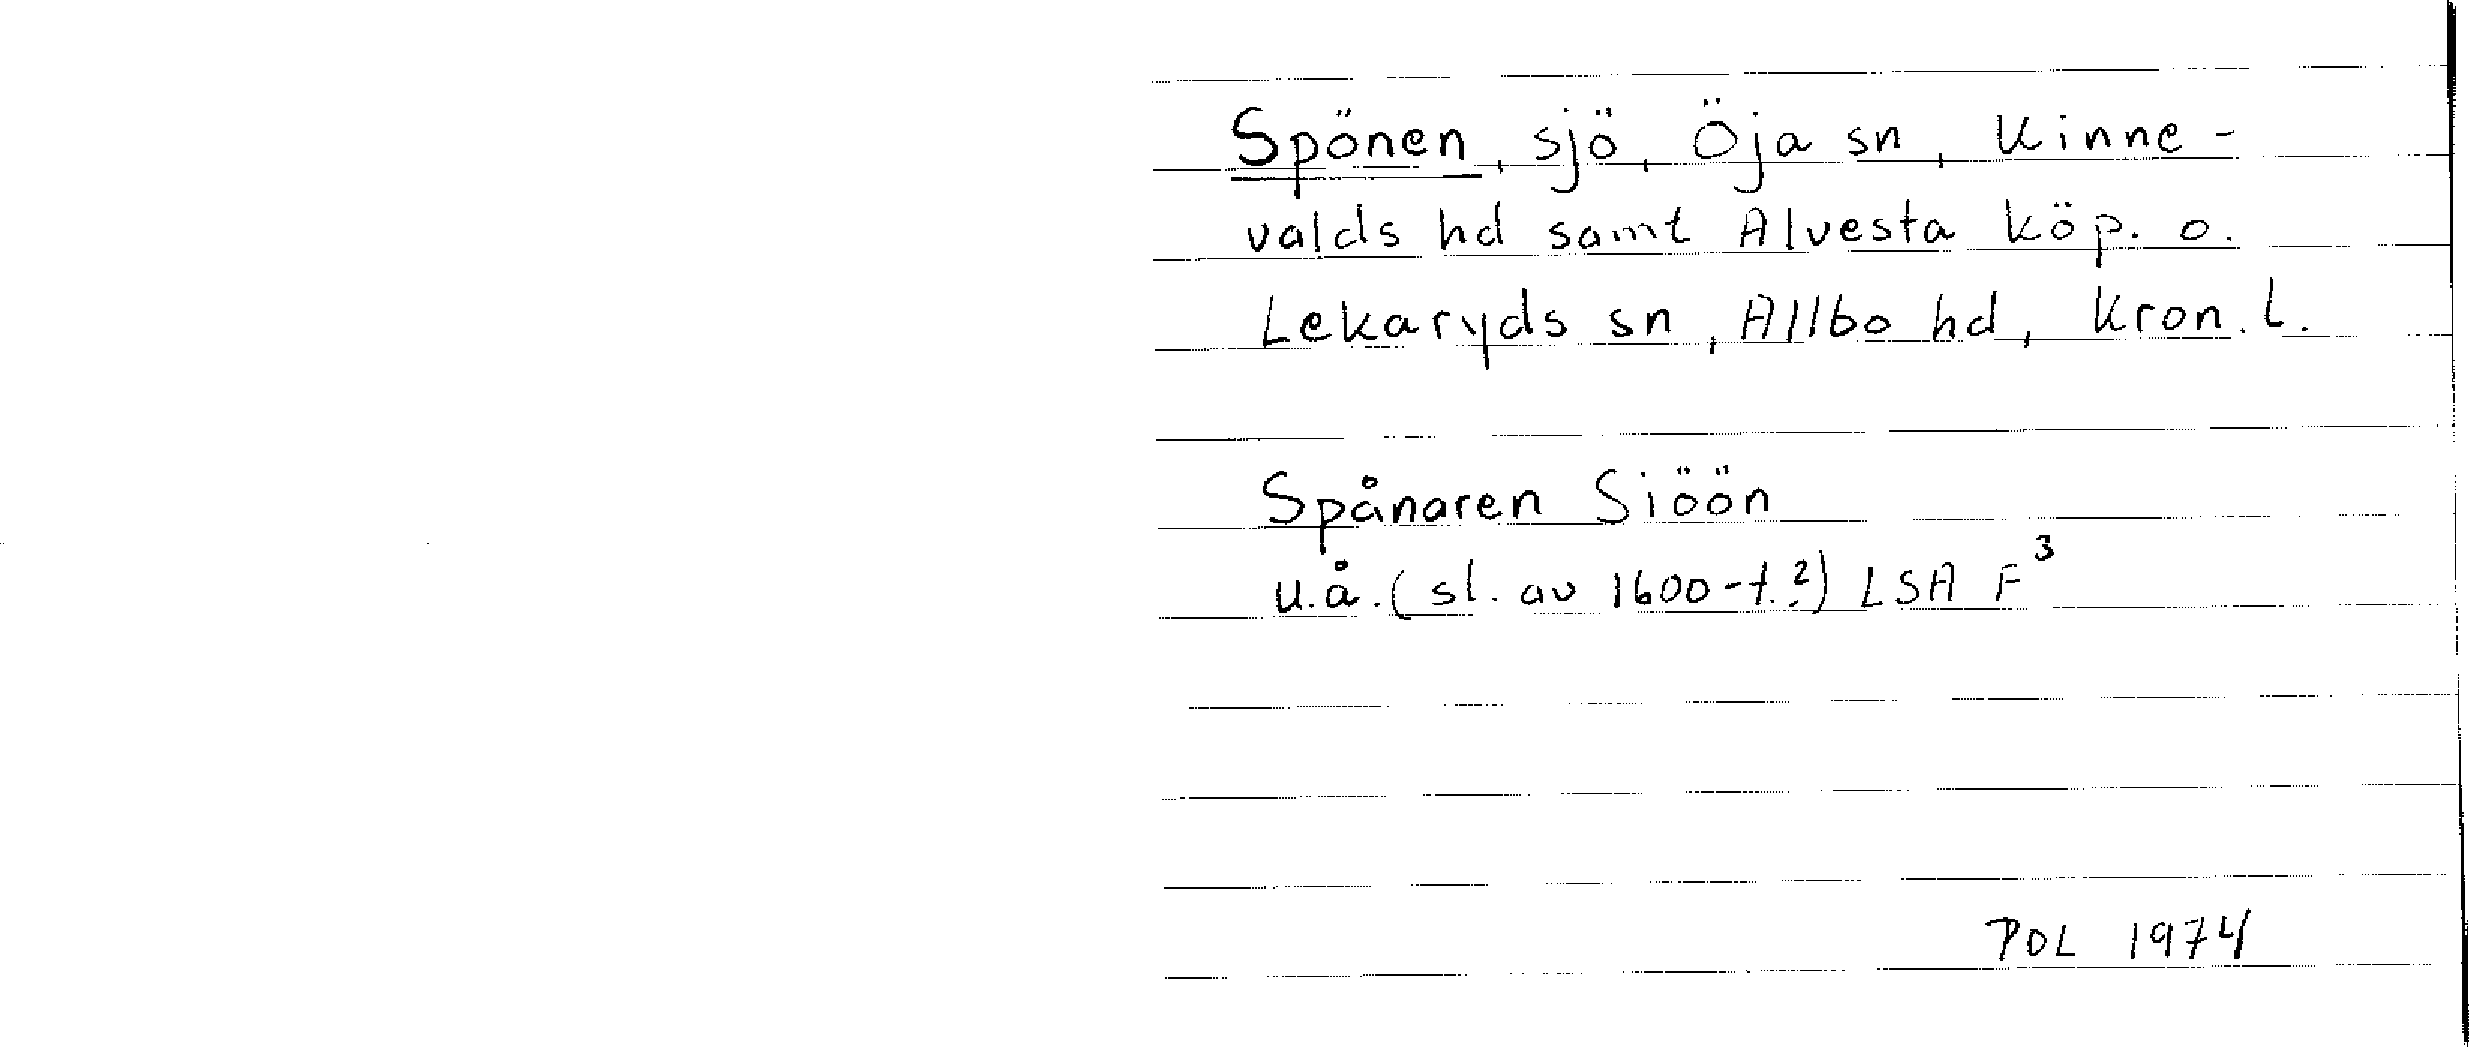 Spönen, sjö, Öja sn, Kinne-
valds hd samt Alvesta köp. o.
Lekaryds sn, Allbo hd, Kron. L.
Spånaren Siöön
u.å. (sl. av 1600-t.?) LSA F³
POL 1974